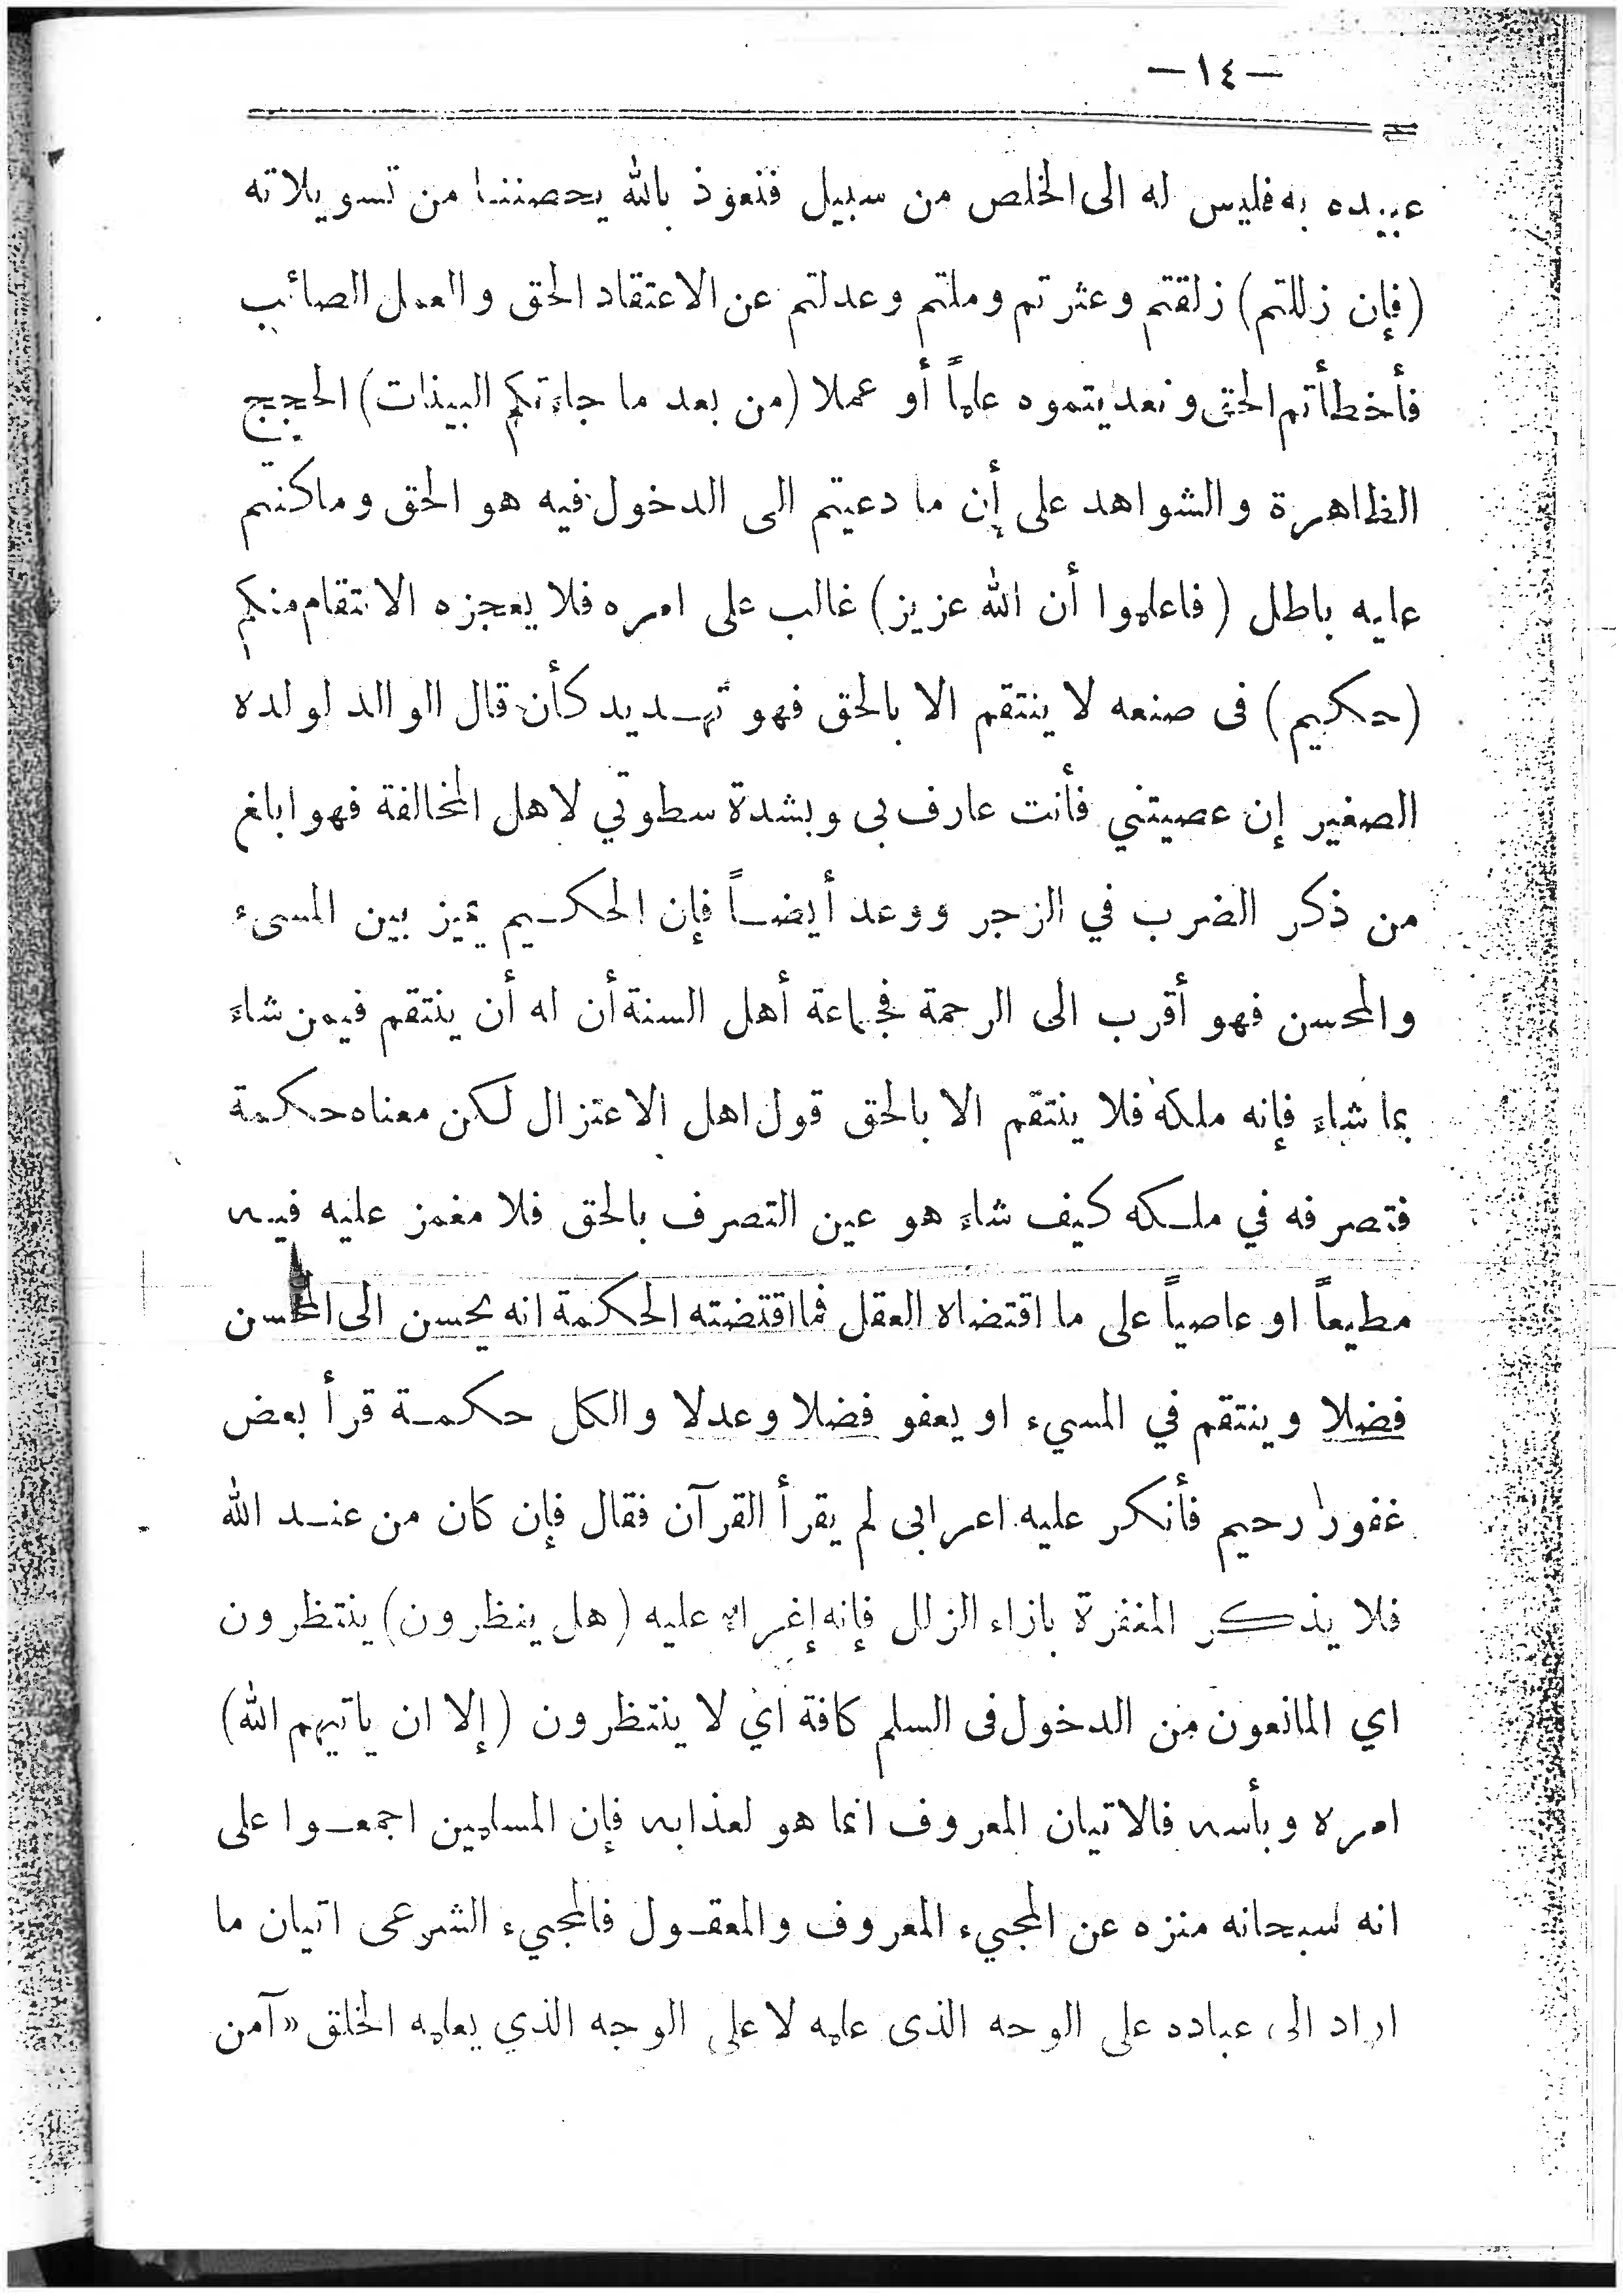 —١٤—
عبيده به فليس له الى الخلص من سبيل فنعوذ بالله يحصننا من تسويلاته
(فإن زللتم) زلقتم وعثرتم وملتم وعدلتم عن الاعتقاد الحق والعمل الصائب
فأخطأتم الحق وتعديتموه علماً أو عملا (من بعد ما جاءتكم البينات) الحجج
الظاهرة والشواهد على أن ما دعيتم الى الدخول فيه هو الحق وما كنتم
عليه باطل (فاعلموا أن الله عزيز) غالب على امره فلا يعجزه الانتقام منكم
(حكيم) فى صنعه لا ينتقم الا بالحق فهو تهديد كأن قال الوالد لولده
الصغير إن عصيتني فأنت عارف بى وبشدة سطوتي لاهل المخالفة فهو ابلغ
من ذكر الضرب في الزجر ووعد أيضاً فإن الحكيم يميز بين المسىء
والمحسن فهو أقرب الى الرحمة فجماعة أهل السنة أن له أن ينتقم فيمن شاء
بما شاء فإنه ملكه فلا ينتقم الا بالحق قول اهل الاعتزال لكن معناه حكمة
فتصرفه في ملكه كيف شاء هو عين التصرف بالحق فلا مغمز عليه فيه
مطيعاً او عاصياً على ما اقتضاه العقل فما اقتضته الحكمة انه يحسن الى المحسن
فضلا وينتقم في المسيء او يعفو فضلا وعدلا والكل حكمة قرأ بعض
غفور رحيم فأنكر عليه اعرابى لم يقرأ القرآن فقال فإن كان من عند الله
فلا يذكر المغفرة بازاء الزلل فإنه إغراء عليه (هل ينظرون) ينتظرون
اي المانعون من الدخول فى السلم كافة اي لا ينتظرون (إلا ان ياتيهم الله)
امره وبأسه فالاتيان المعروف انما هو لعذابه فإن المسلمين اجمعوا على
انه سبحانه منزه عن المجيء المعروف والمعقول فالمجيء الشرعى اتيان ما
اراد الى عباده على الوجه الذى علمه لا على الوجه الذي يعلمه الخلق «آمن